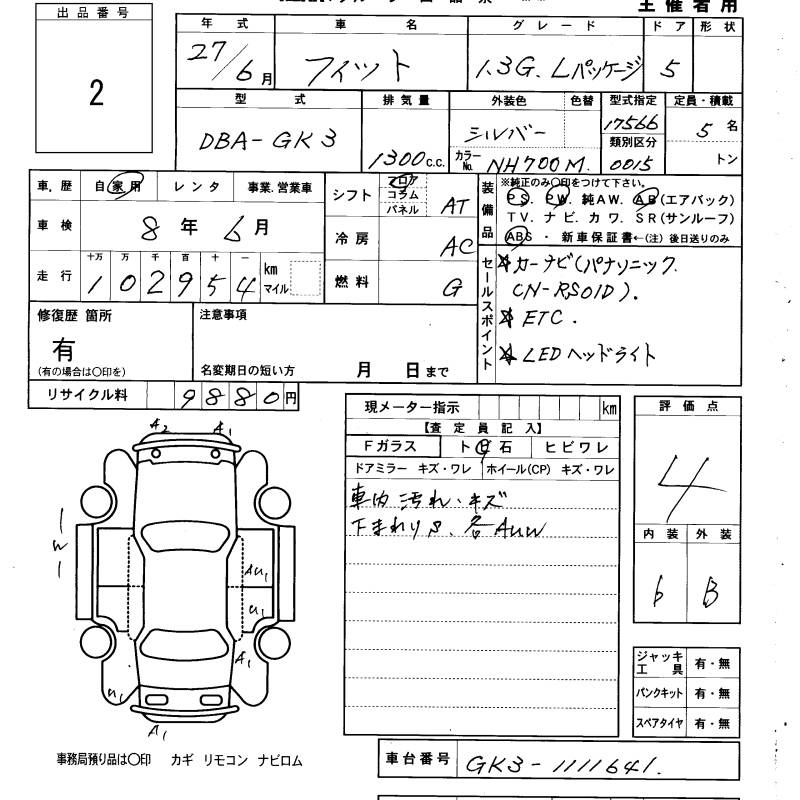 主催者用
出品番号
2
年式 車名 グレード ドア 形状
27/6月 フィット 1.3G. Lパッケージ 5
型式 排気量 外装色 色替 型式指定 定員・積載
DBA-GK3 1300c.c. シルバー 17566 5名
カラーNo. NH700M. 類別区分 0015 トン
車.歴 自家用 レンタ 事業.営業車
車検 8年6月
走行 十万 万 千 百 十 一
102954 km マイル
シフト フロア コラム パネル AT
冷房 AC
燃料 G
装備品
※純正のみ〇印をつけて下さい。
PS. PW. 純AW. AB(エアバック)
TV. ナビ. カワ. SR(サンルーフ)
ABS ・ 新車保証書←(注) 後日送りのみ
セールスポイント
カーナビ(パナソニック
CN-RS01D).
ETC.
LEDヘッドライト
修復歴 箇所
有
(有の場合は〇印を)
注意事項
名変期日の短い方 月 日まで
リサイクル料 9880円
現メーター指示 km
【査定員記入】
Fガラス ト石 ヒビワレ
ドアミラー キズ・ワレ ホイール(CP) キズ・ワレ
車内 汚れ・キズ
下まわりS. 各AUW
評価点
4
内装 外装
6 B
A2 A1
W
AU1
U1
A1
U1
A1
ジャッキ工具 有・無
パンクキット 有・無
スペアタイヤ 有・無
事務局預り品は〇印 カギ リモコン ナビロム
車台番号 GK3-1111641.